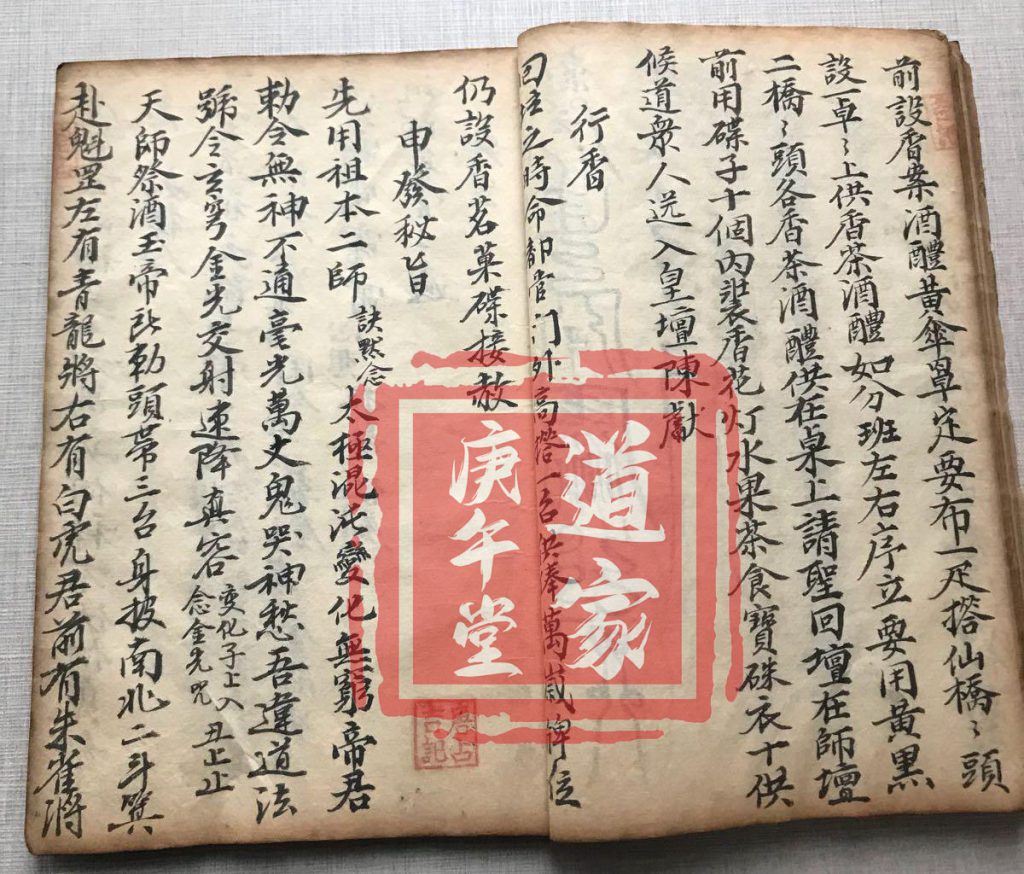 前設香案酒醴黃傘罩定要布一疋搭仙橋〻頭
設一卓〻上供香茶酒醴如分班左右序立要用黃黑
二橋〻頭各香茶酒醴供在桌上請聖回壇在師壇
前用碟子十個內裝香花灯水果茶食寶硃衣十供
候道衆人送入皇壇陳獻
行香
回壇之時命部官門外高搭一台供奉萬歲牌位
仍設香茗菓碟接赦
申發秘旨
先用祖本二師訣默念太極混沌變化無窮帝君
勅令無神不通毫光萬丈鬼哭神愁吾違道法
號令玄穹金光交射速降真容變化子上入念金光咒丑上止
天師祭酒玉帝勅頭帶三台身披南北二斗
赴魁罡左有青龍將右有白虎君前有朱雀將
道家
庚午堂